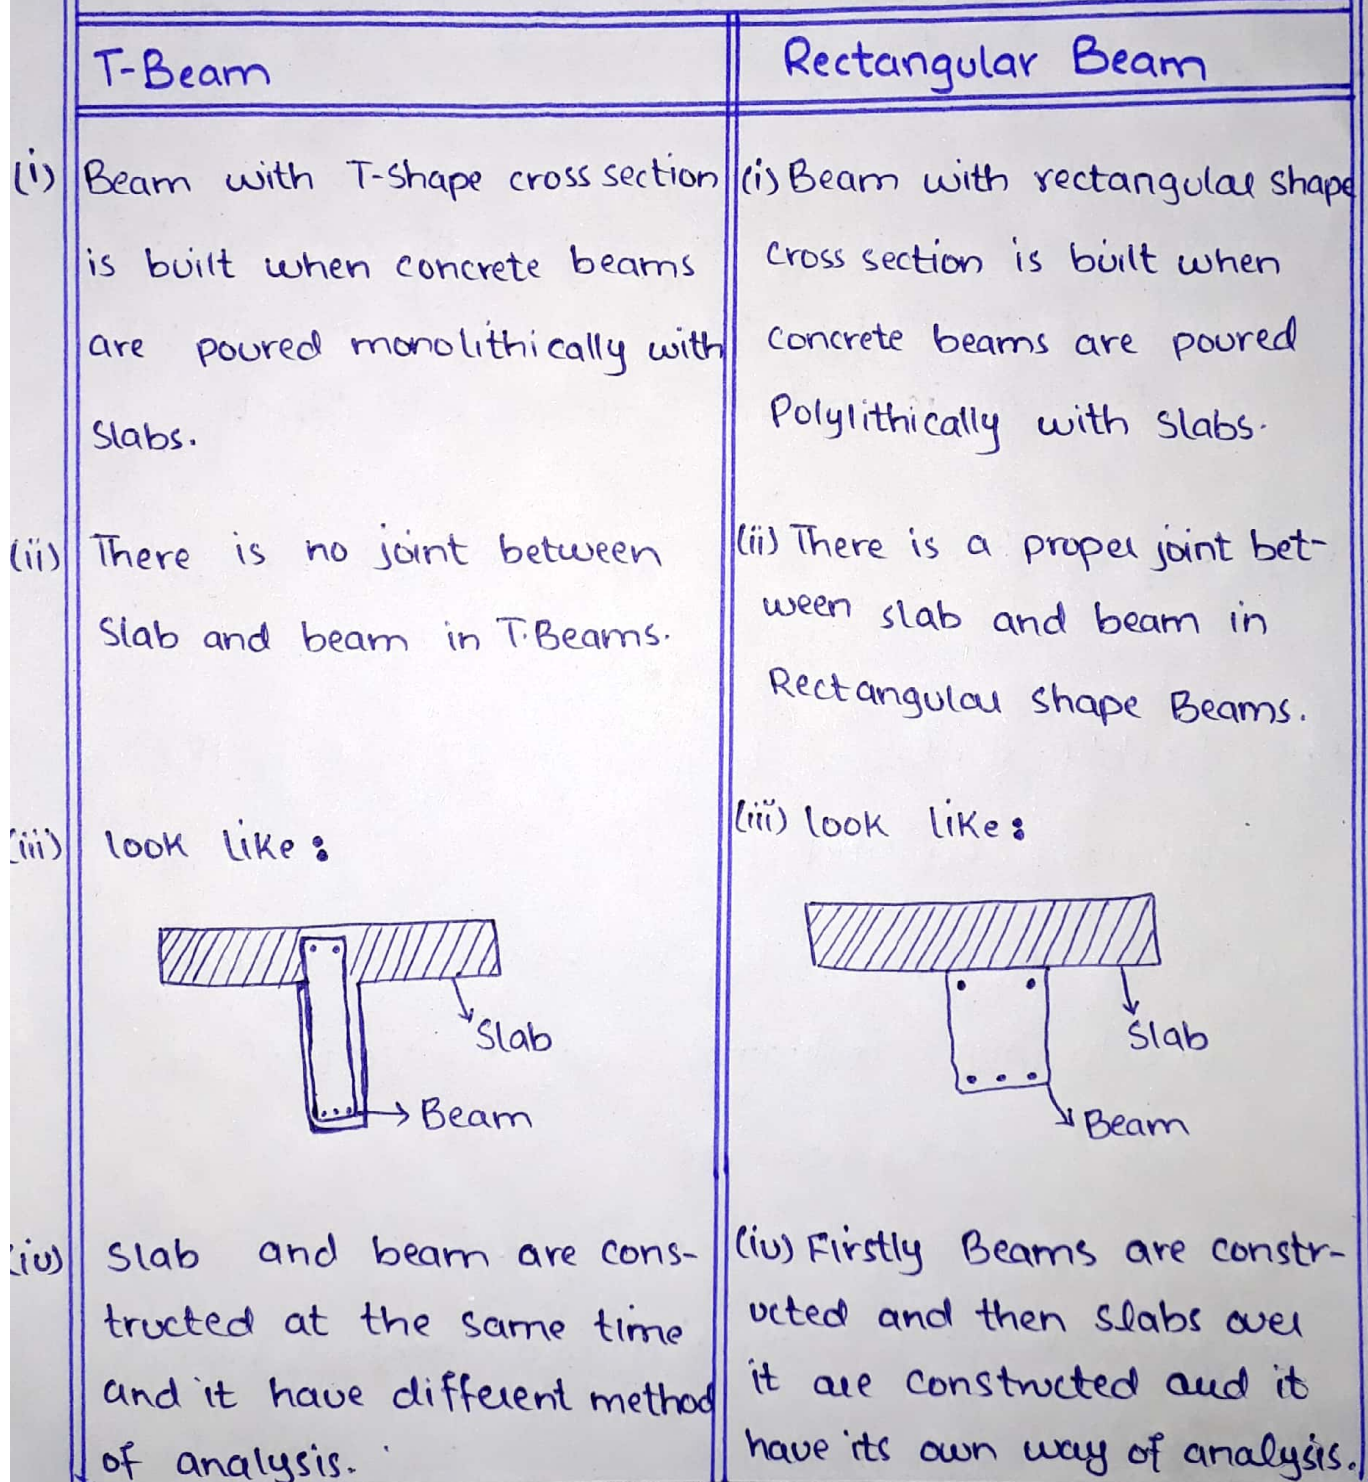 T-Beam
Rectangular Beam
(i) Beam with T-Shape cross section
is built when concrete beams
are poured monolithically with
Slabs.
(i) Beam with rectangular shape
cross section is built when
concrete beams are poured
Polylithically with slabs.
(ii) There is no joint between
Slab and beam in T.Beams.
(ii) There is a proper joint bet-
ween slab and beam in
Rectangular shape Beams.
(iii) look like:
Slab
Beam
(iii) look like:
Slab
Beam
(iv) Slab and beam are cons-
tructed at the same time
and it have different method
of analysis.
(iv) Firstly Beams are constr-
ucted and then slabs over
it are constructed and it
have its own way of analysis.